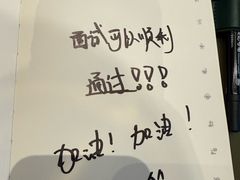 面试可以顺利
通过!!!
加油! 加油!